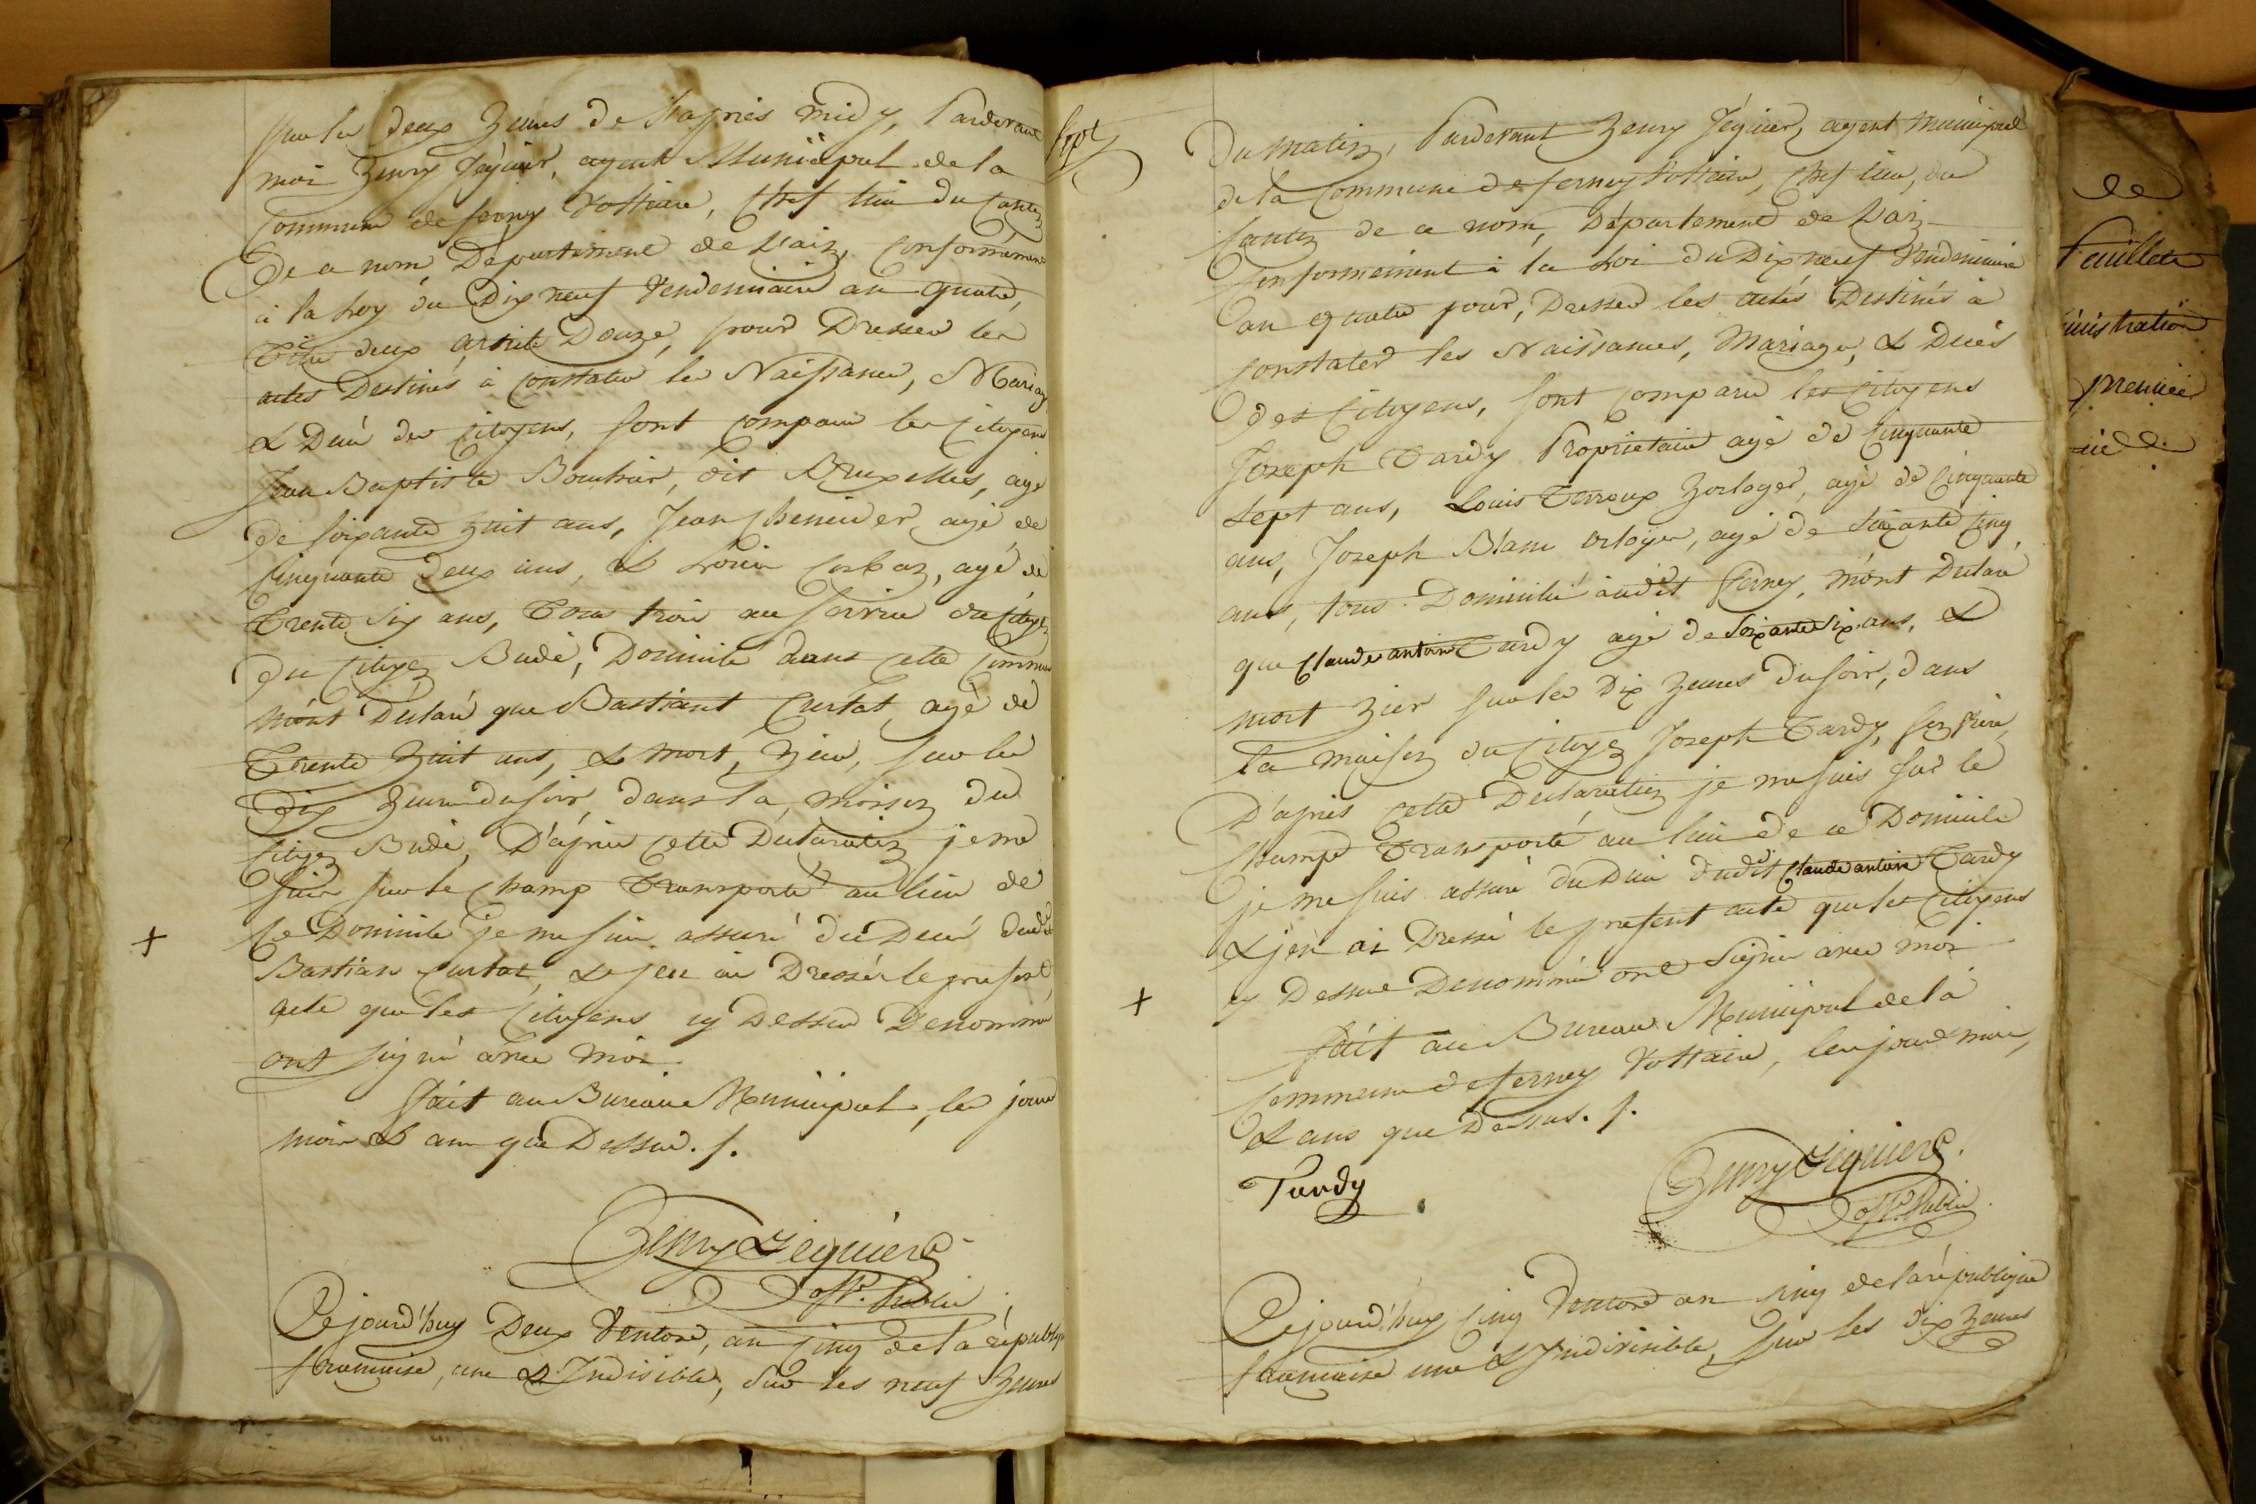 sur les deux heures de l'après midy, Pardevant
moi henry Iéquier, agent Municipal de la
Commune de ferney Voltaire, Chef lieu du Canton
De ce nom, Département de L'ain, Conformément
à la loy du Dix neuf Vendemiaire an quatre,
Titre deux, article Douze, pour Dresser les
actes Destinés à Constater les Naissances, Mariage
& Décé des Citoyens, sont Comparu les Citoyens
Jean Baptiste dit Bruxelles, agé
de soixante huit ans, Jean agé de
Cinquante deux ans, & Louis Corbaz, agé de
Trente six ans, Tous trois au service du Citoyen
du Citoyen Budé, Domicilié dans cette Commune
mont Déclaré que Bastiant Curtat, agé de
Trente huit ans, & mort, hier, sur les
dix heures du soir, dans la maison du
Citoyen Budé, D'après cette Déclaration je me
suis sur le Champ Transporté au lieu de
Ce Domicile je me suis assuré du Décé dudit
Bastian Curtat, & jen ai Dressér le present
acte que les Citoyens cy Dessus Dénommé
ont signé avec moi.
fait au Bureau Municipal, les jour
mois & an que Dessus. /.
Henry Iéquier
off. Public
Cejourd'huy Deux Ventose, an Cinq de la république
francaise, une & Indisible, sur les neuf heures
sept
Du matin, Pardevant henry Iéquier, agent Municipal
de la Commune de ferney Voltaire, Chef lieu, du
Canton de ce nom, Département de L'ain
Conformément à la Loi du Dix neuf Vendemiaire
an quatre pour, Dresser les actes Destinés à
Constater les Naissances, Mariage, & Décés
des Citoyens, sont Comparu les Citoyens
Joseph Tardy Proprietaire agé de Cinquante
sept ans, Louis Terroux horloger, agé de Cinquante
ans, Joseph Blanc orloger, agé de soixante Cinq
ans, tous Domicilié audit ferney, mont Déclaré
que Claude antoine Tardy agé de Soixante six ans, &
mort hier sur les Dix heures du soir, dans
la maison du Citoyen Joseph Tardy, son frère,
D'après cette Déclaration je me suis sur le
Champ Transporté au lieu de ce Domicile
je me suis assuré du Décé dudit Claude antoine Tardy
& j'en ai Dressé le present acte que les Citoyens
cy Dessus Dénommé ont Signé avec moi
fait au Bureau Municipal de la
Commune de ferney Voltaire, les jour & mois,
& ans que Dessus. /.
Tardy
Henry Iéquier
off. Public
Cejourd'huy Cinq Ventose an Cinq de la république
francaise une & Indivisible, sur les dix heures
de
feuillet
ministration
premier